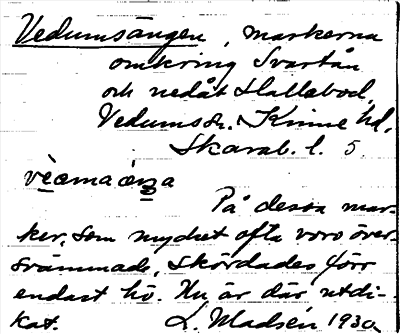 Vedumsängen, markerna
omkring Svartån
och nedåt Hallebod,
Vedums sn. Kinne hd.
Skarab. l. 5.
På dessa mar-
ker, som mycket ofta voro över-
svämmade, skördades förr
endast hö. Nu är där utdi-
kat. L. Madsén 1930